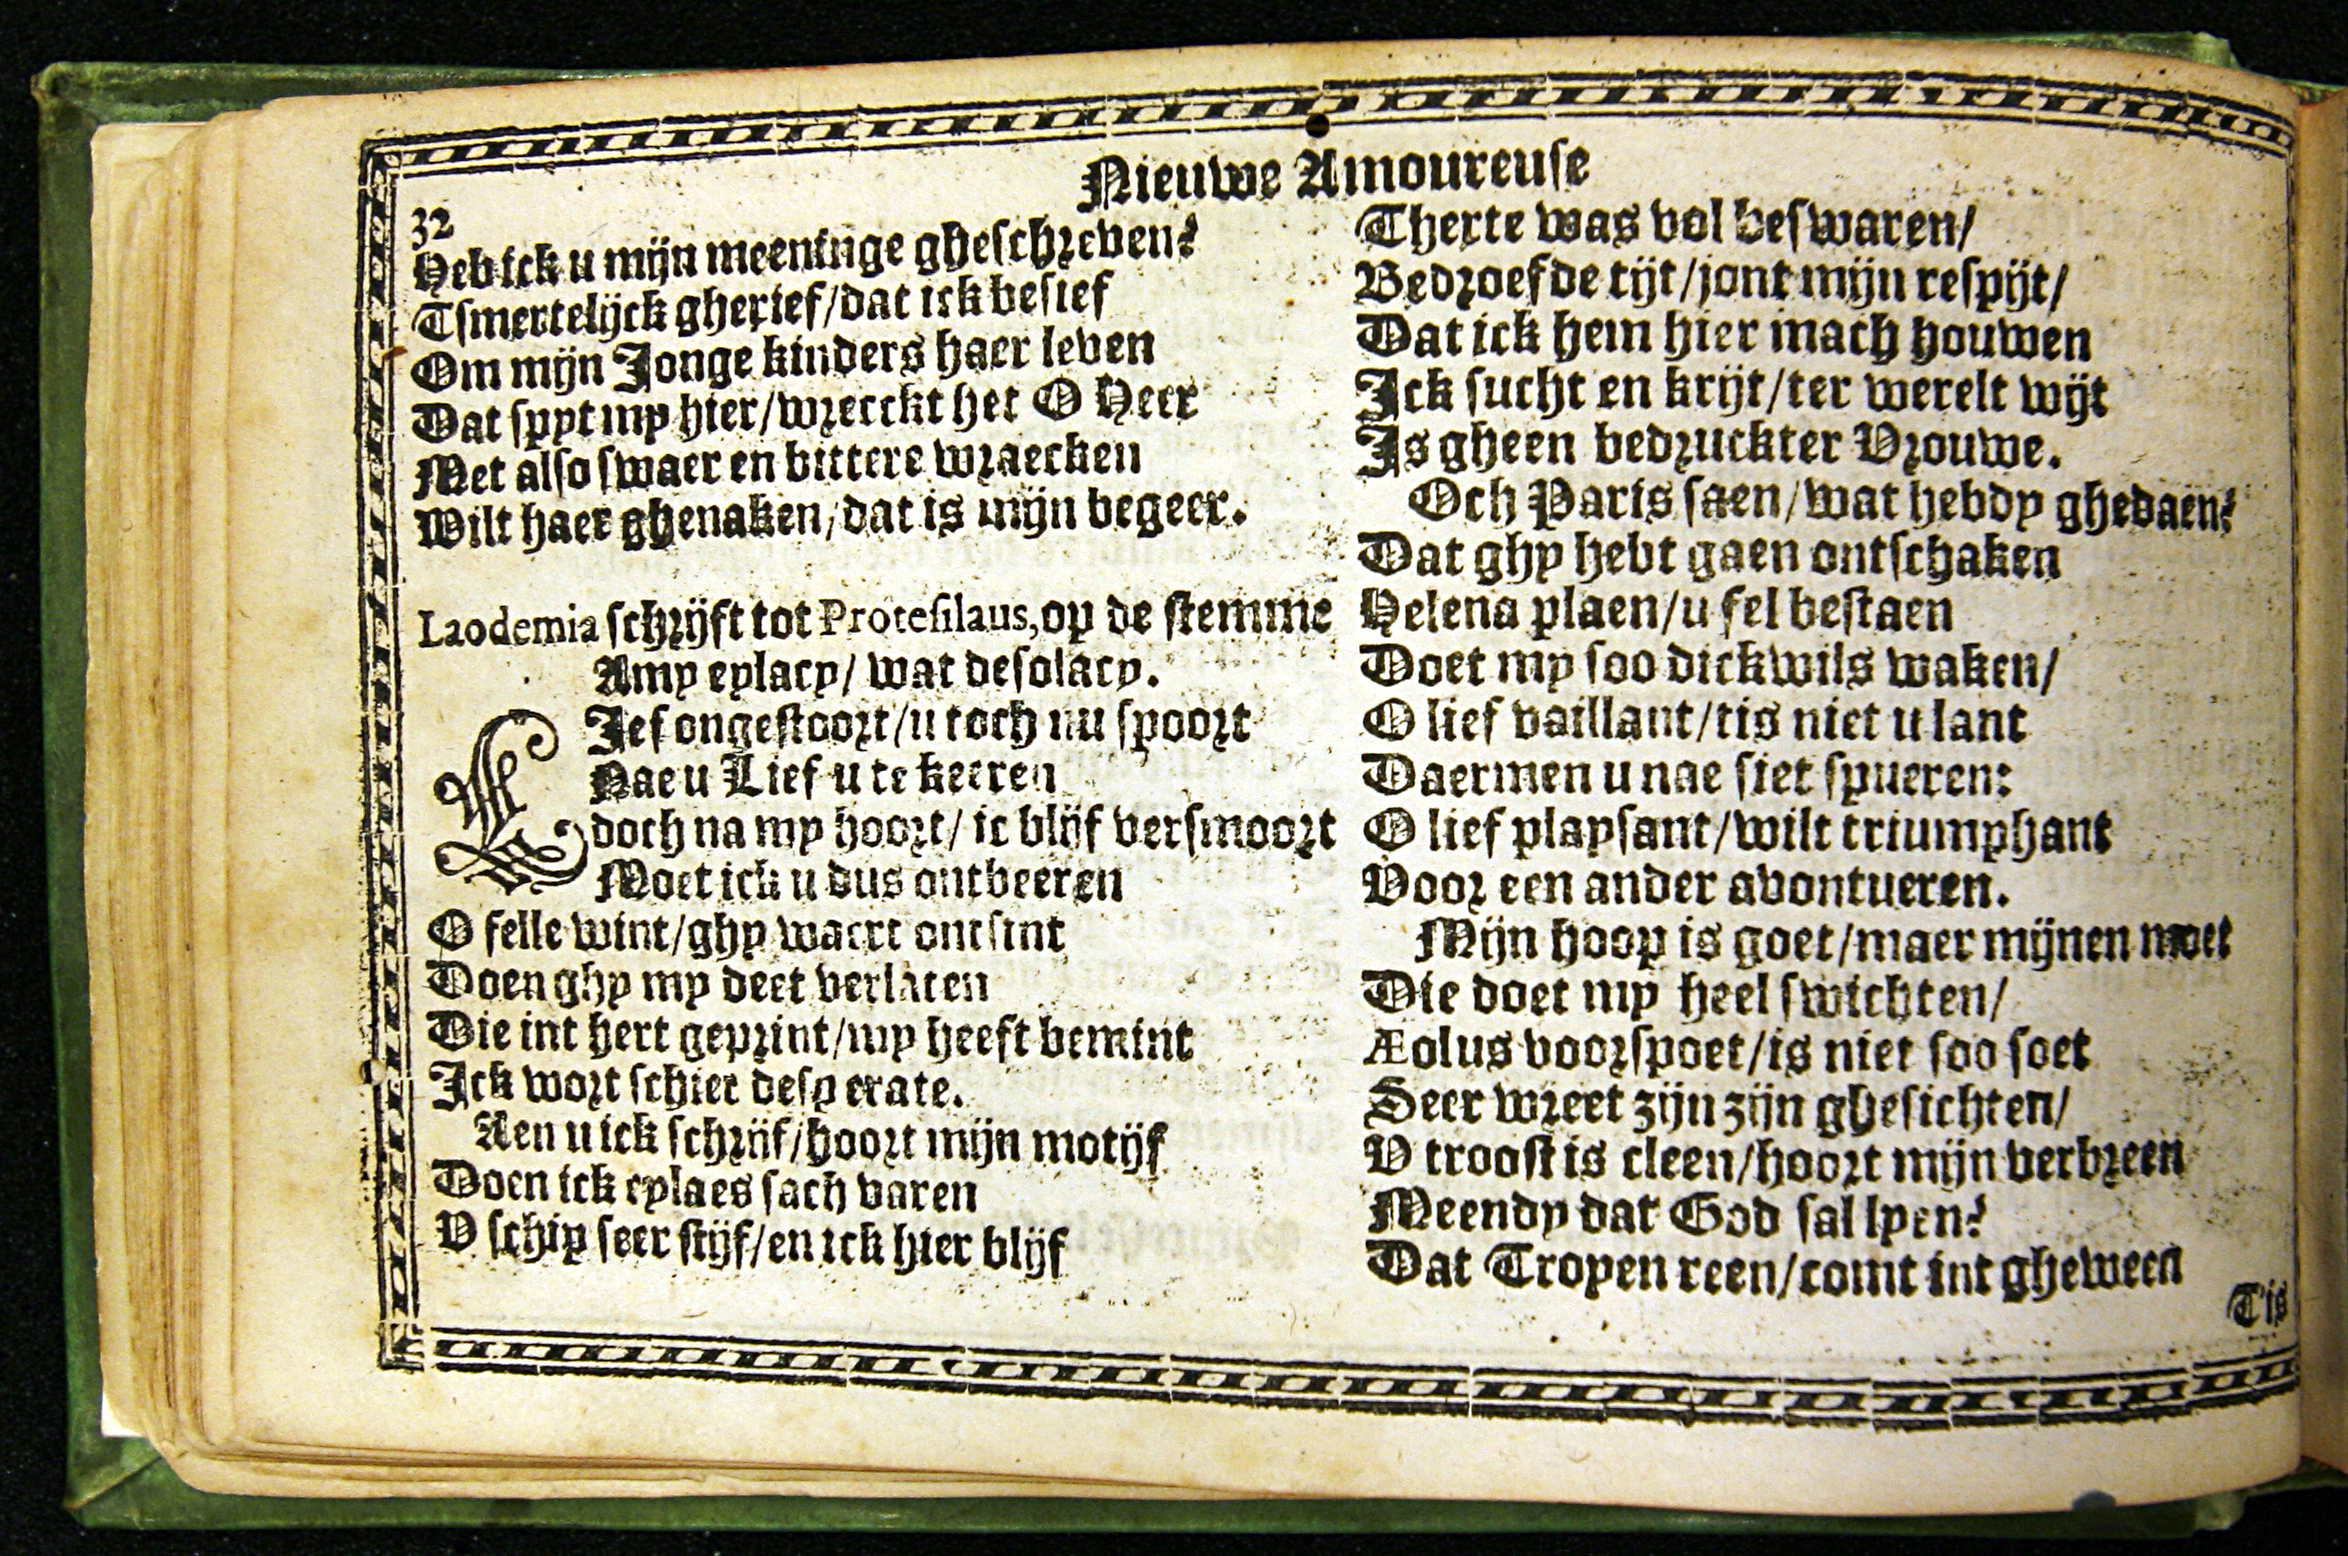 Nieuwe Amoureuse
32
Heb ick u mijn meeninge gheschreven?
Tsmertelijck gherief/dat ick besief
Om mijn Jonge kinders haer leven
Dat spyt my hier/wreeckt het O Heer
Met also swaer en bittere wraecken
Wilt haer ghenaken/dat is mijn begeer.
Laodemia schrijft tot Protesilaus, op de stemme
Amy eylacy/ wat desolacy.
LIef ongestoort/u toch nu spoort
Nae u Lief u te keeren
doch na my hoort/ ic blijf versmoort
Moet ick u dus ontbeeren
O felle wint/ghy waert ontsint
Doen ghy my deet verlaten
Die int hert geprint/my heeft bemint
Ick wort schier desperate.
Aen u ick schrijf/hoort mijn motijf
Doen ick eylaes sach varen
V schip seer stijf/en ick hier blijf
Therte was vol beswaren/
Bedroefde tijt/jont mijn respijt/
Dat ick hem hier mach houwen
Ick sucht en krijt/ter werelt wijt
Is gheen bedruckter Vrouwe.
Och Paris saen/wat hebdy ghedaen?
Dat ghy hebt gaen ontschaken
Helena plaen/u fel bestaen
Doet my soo dickwils waken/
O lief vaillant/tis niet u lant
Daermen u nae siet spueren:
O lief playsant/wilt triumphant
Voor een ander avontueren.
Mijn hoop is goet/maer mijnen moet
Die doet my heel swichten/
Æolus voorspoet/is niet soo soet
Seer wreet zijn zijn ghesichten/
V troost is cleen/hoort mijn verbreen
Meendy dat God sal lyen?
Dat Tropen reen/comt int gheween
T'is